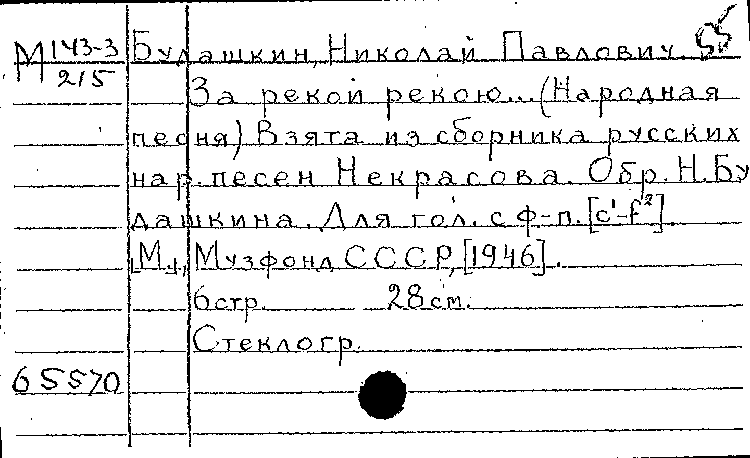 М 143-3 Будашкин, Николай Павлович.
215
За рекой рекою... (Народная
песня) Взята из сборника русских
нар. песен Некрасова. Обр. Н. Бу
дашкина. Для гол. с ф-п. [c¹-f²].
[М.], Музфонд СССР, [1946].
6 стр. 28 см.
Стеклогр.
65570